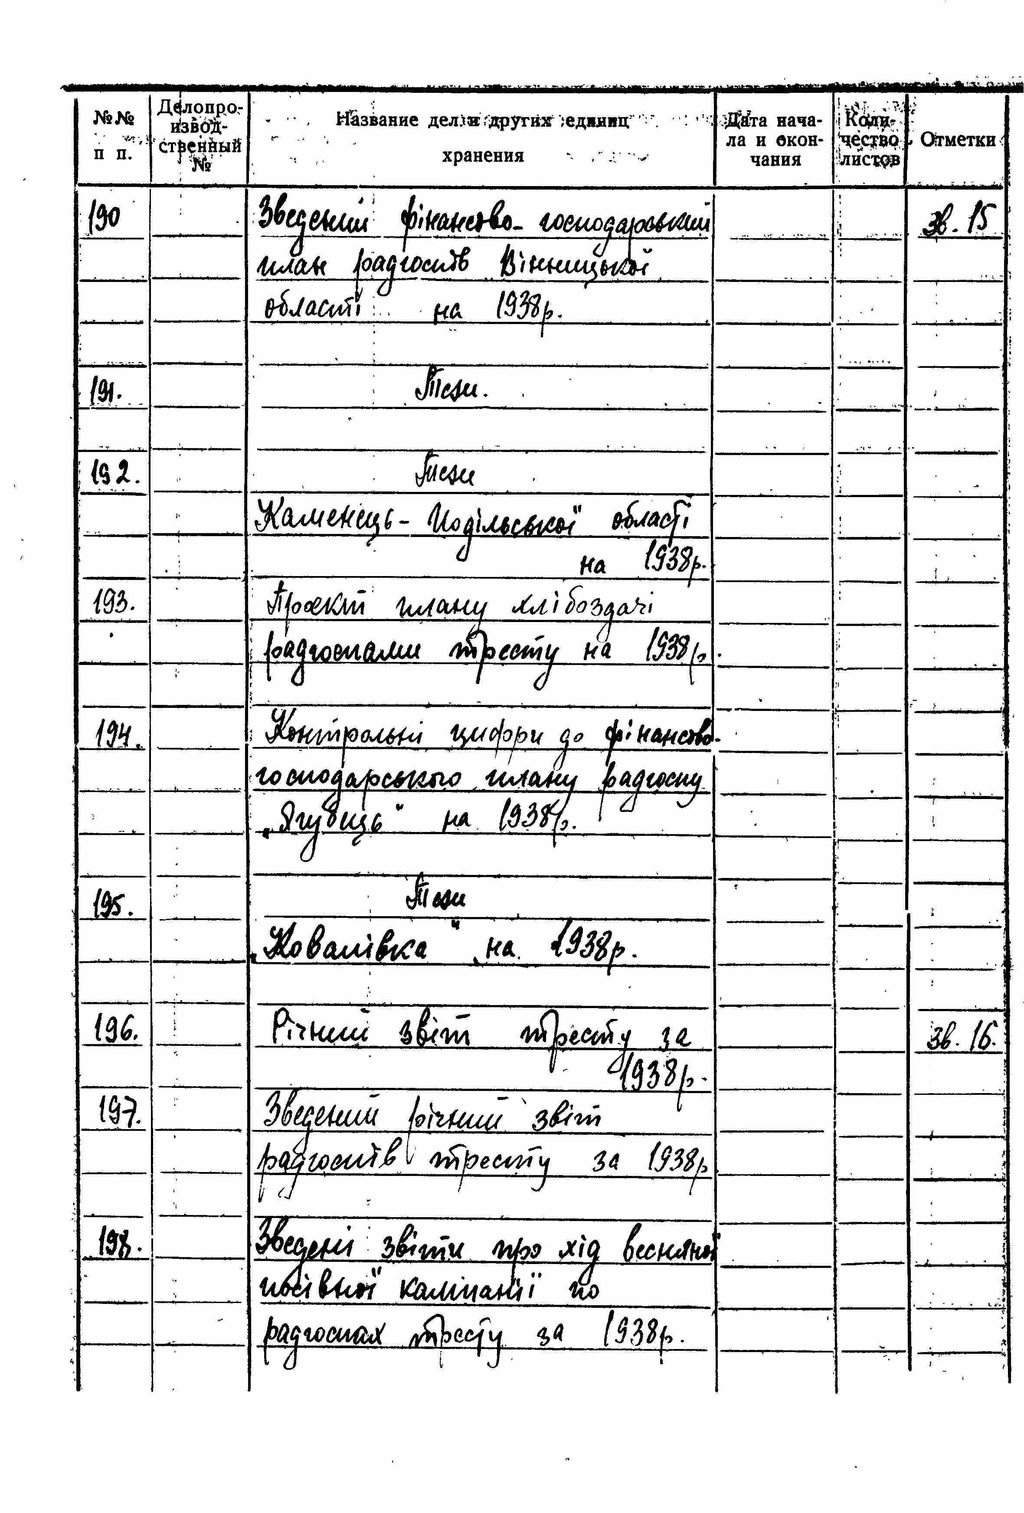 №№ п п.
Делопро-
извод-
ственный
№
Название дел и других единиц
хранения
Дата нача-
ла и окон-
чания
Коли-
чество
листов
Отметки
190 Зведений фінансово-господарський зв. 15
план радгоспів Вінницької
області на 1938р.
191. Тези.
192. Тези
Каменець-Подільської області
на 1938р.
193. Проєкт плану хлібоздачі
радгоспами тресту на 1938р.
194. Контрольні цифри до фінансово-
господарського плану радгоспу
„Ягубець" на 1938р.
195. Тези
„Ковалівка" на 1938р.
196. Річний звіт тресту за зв. 16.
1938р.
197. Зведений річний звіт
радгоспів тресту за 1938р
198. Зведені звіти про хід весняної
посівної кампанії по
радгоспах тресту за 1938р.